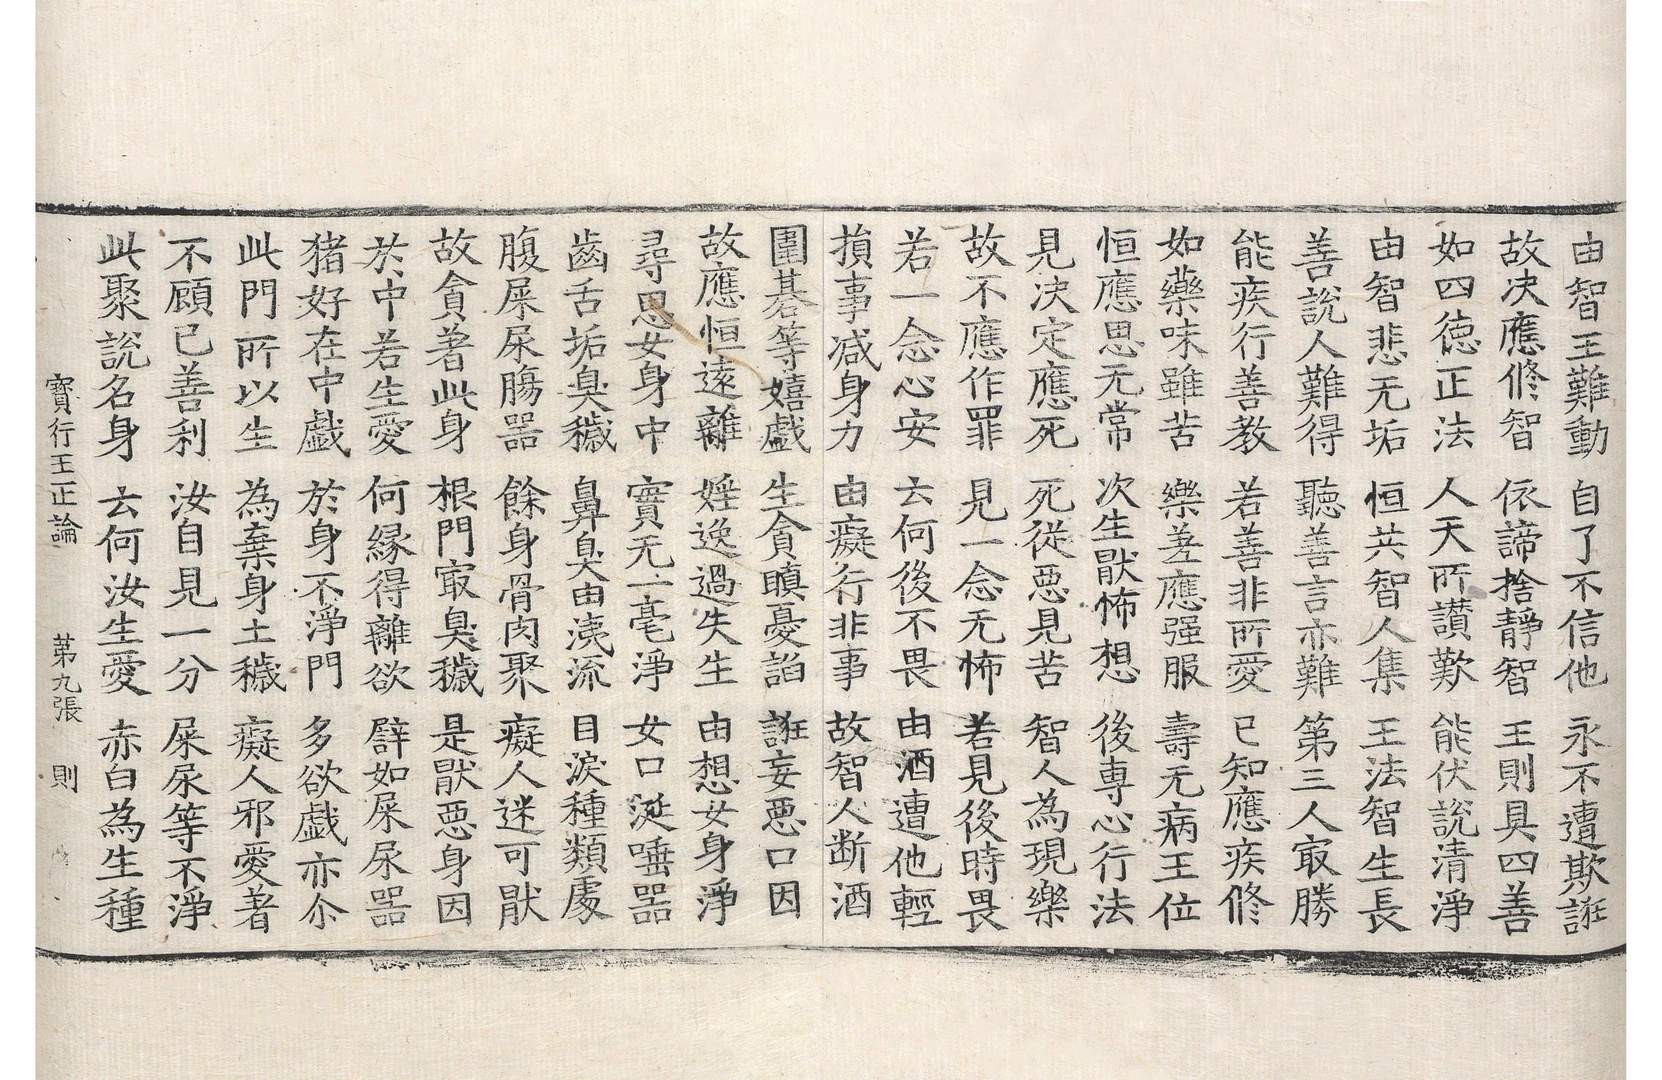 由智王難動 自了不信他 永不遭欺誑
故决應修智 依諦捨靜智 王則具四善
如四德正法 人天所讃歎 能伏說清淨
由智悲无垢 恒共智人集 王法智生長
善說人難得 聽善言亦難 第三人㝡勝
能疾行善教 若善非所愛 已知應疾修
如藥味雖苦 樂差應强服 壽无病王位
恒應思无常 次生猒怖想 後專心行法
見决定應死 死從惡見苦 智人為現樂
故不應作罪 見一念无怖 若見後時畏
若一念心安 云何後不畏 由酒遭他輕
損事減身力 由癡行非事 故智人断酒
圍碁等嬉戲 生貪瞋憂諂 誑妄惡口因
故應恒遠離 婬逸過失生 由想女身淨
尋思女身中 實无一毫淨 女口涎唾器
齒舌垢臭穢 鼻臭由洟流 目淚種類處
腹屎尿腸器 餘身骨肉聚 癡人迷可猒
故貪著此身 根門㝡臭穢 是猒惡身因
於中若生愛 何緣得離欲 譬如屎尿器
猪好在中戲 於身不淨門 多欲戲亦尒
此門所以生 為棄身土穢 癡人邪愛著
不顧已善利 汝自見一分 屎尿等不淨
此聚說名身 云何汝生愛 赤白為生種
寶行王正論 第九張 則